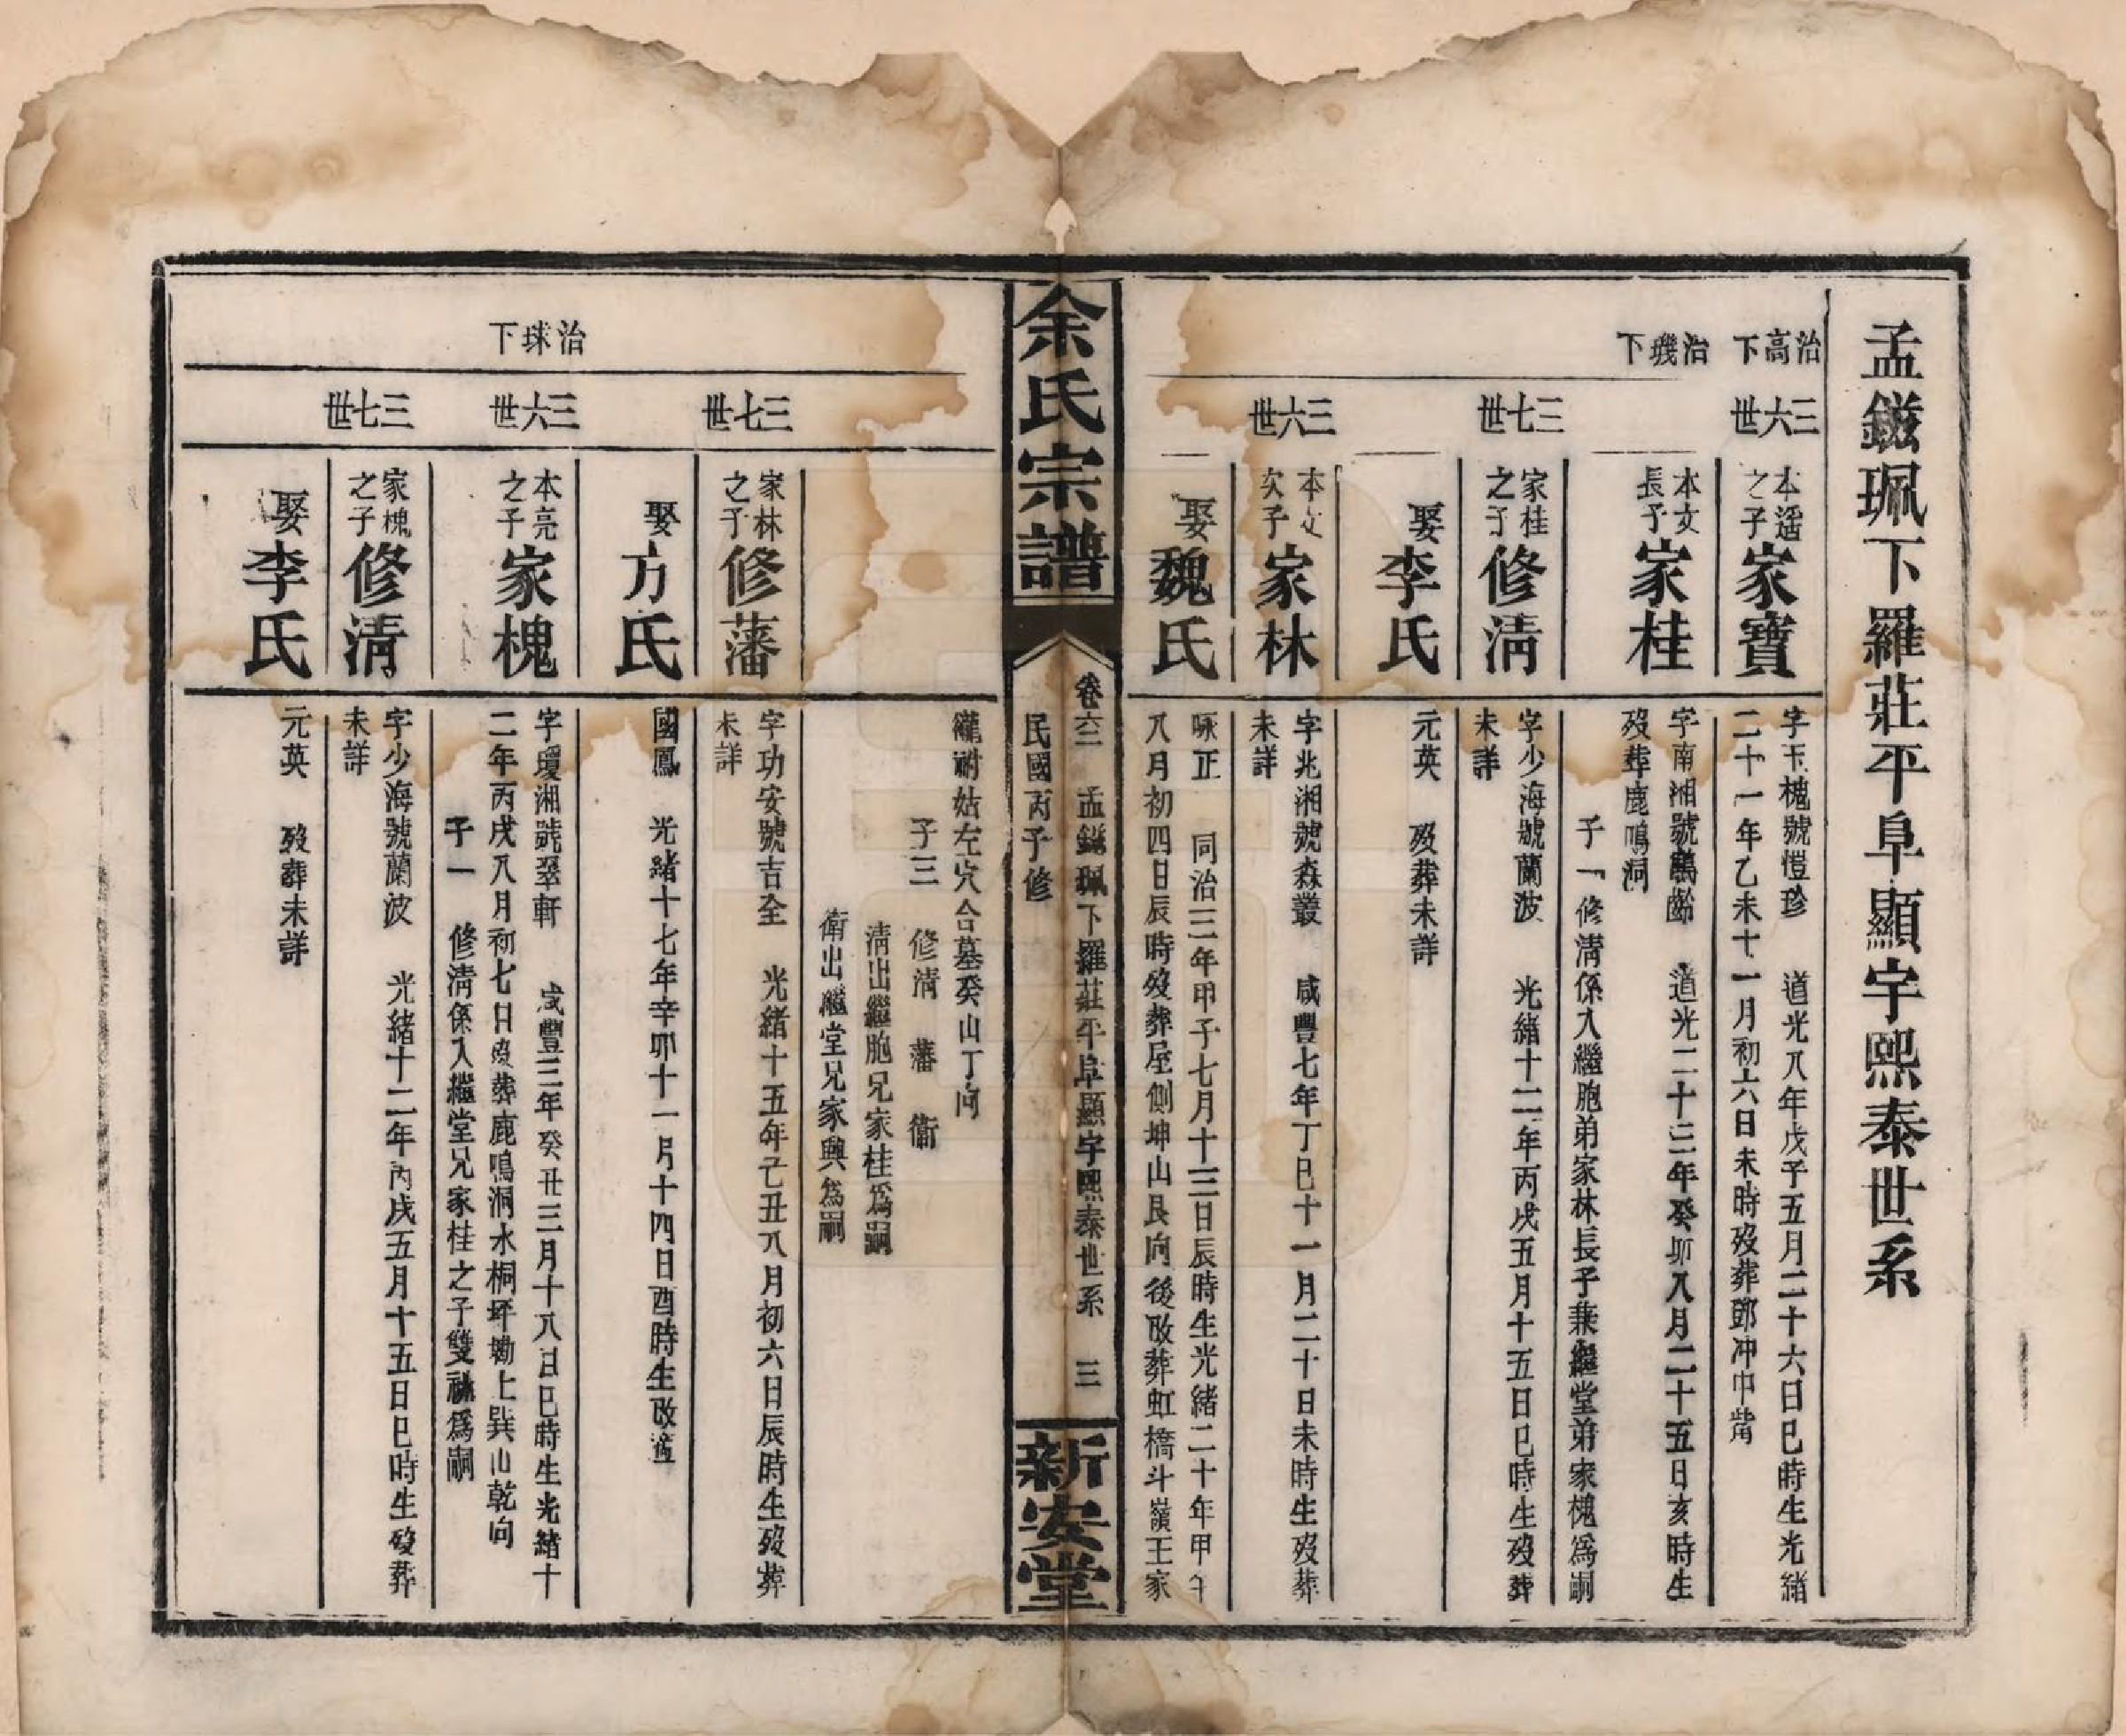 孟鎡珮下羅莊平阜顯宇熙泰世系
治高下
三六世
本遥之子
家寶
字玉槐號愷珍　道光八年戊子五月二十六日巳時生光緒
二十一年乙未十一月初六日未時歿葬鄧冲中觜
治璣下
本文長子
家桂
字南湘號鶴齡　道光二十三年癸卯八月二十五日亥時生
歿葬鹿鳴洞
子一　修清係入繼胞弟家林長子兼繼堂弟家槐爲嗣
三七世
家桂之子
修清
字少海號蘭波　光緒十二年丙戌五月十五日巳時生歿葬
未詳
娶
李氏
元英　歿葬未詳
三六世
本文次子
家林
字兆湘號森叢　咸豐七年丁巳十一月二十日未時生歿葬
未詳
娶
魏氏
咏正　同治三年甲子七月十三日辰時生光緒二十年甲午
八月初四日辰時歿葬屋側坤山艮向後改葬虹橋斗嶺王家
余氏宗譜
卷六二　孟鎡珮下羅莊平阜顯宇熙泰世系　三
民國丙子修
新安堂
瓏祔姑左穴合墓癸山丁向
子三　修清　藩　衞
清出繼胞兄家桂爲嗣
衛出繼堂兄家興爲嗣
三七世
家林之子
修藩
字功安號吉全　光緒十五年己丑八月初六日辰時生歿葬
未詳
娶
方氏
國鳳　光緒十七年辛卯十一月十四日酉時生改適
治球下
三六世
本亮之子
家槐
字瓊湘號翠軒　咸豐三年癸丑三月十八日巳時生光緒十
二年丙戌八月初七日歿葬鹿鳴洞水桐坪坳上巽山乾向
子一　修清係入繼堂兄家桂之子雙祧爲嗣
三七世
家槐之子
修清
字少海號蘭波　光緒十二年丙戌五月十五日巳時生歿葬
未詳
娶
李氏
元英　歿葬未詳